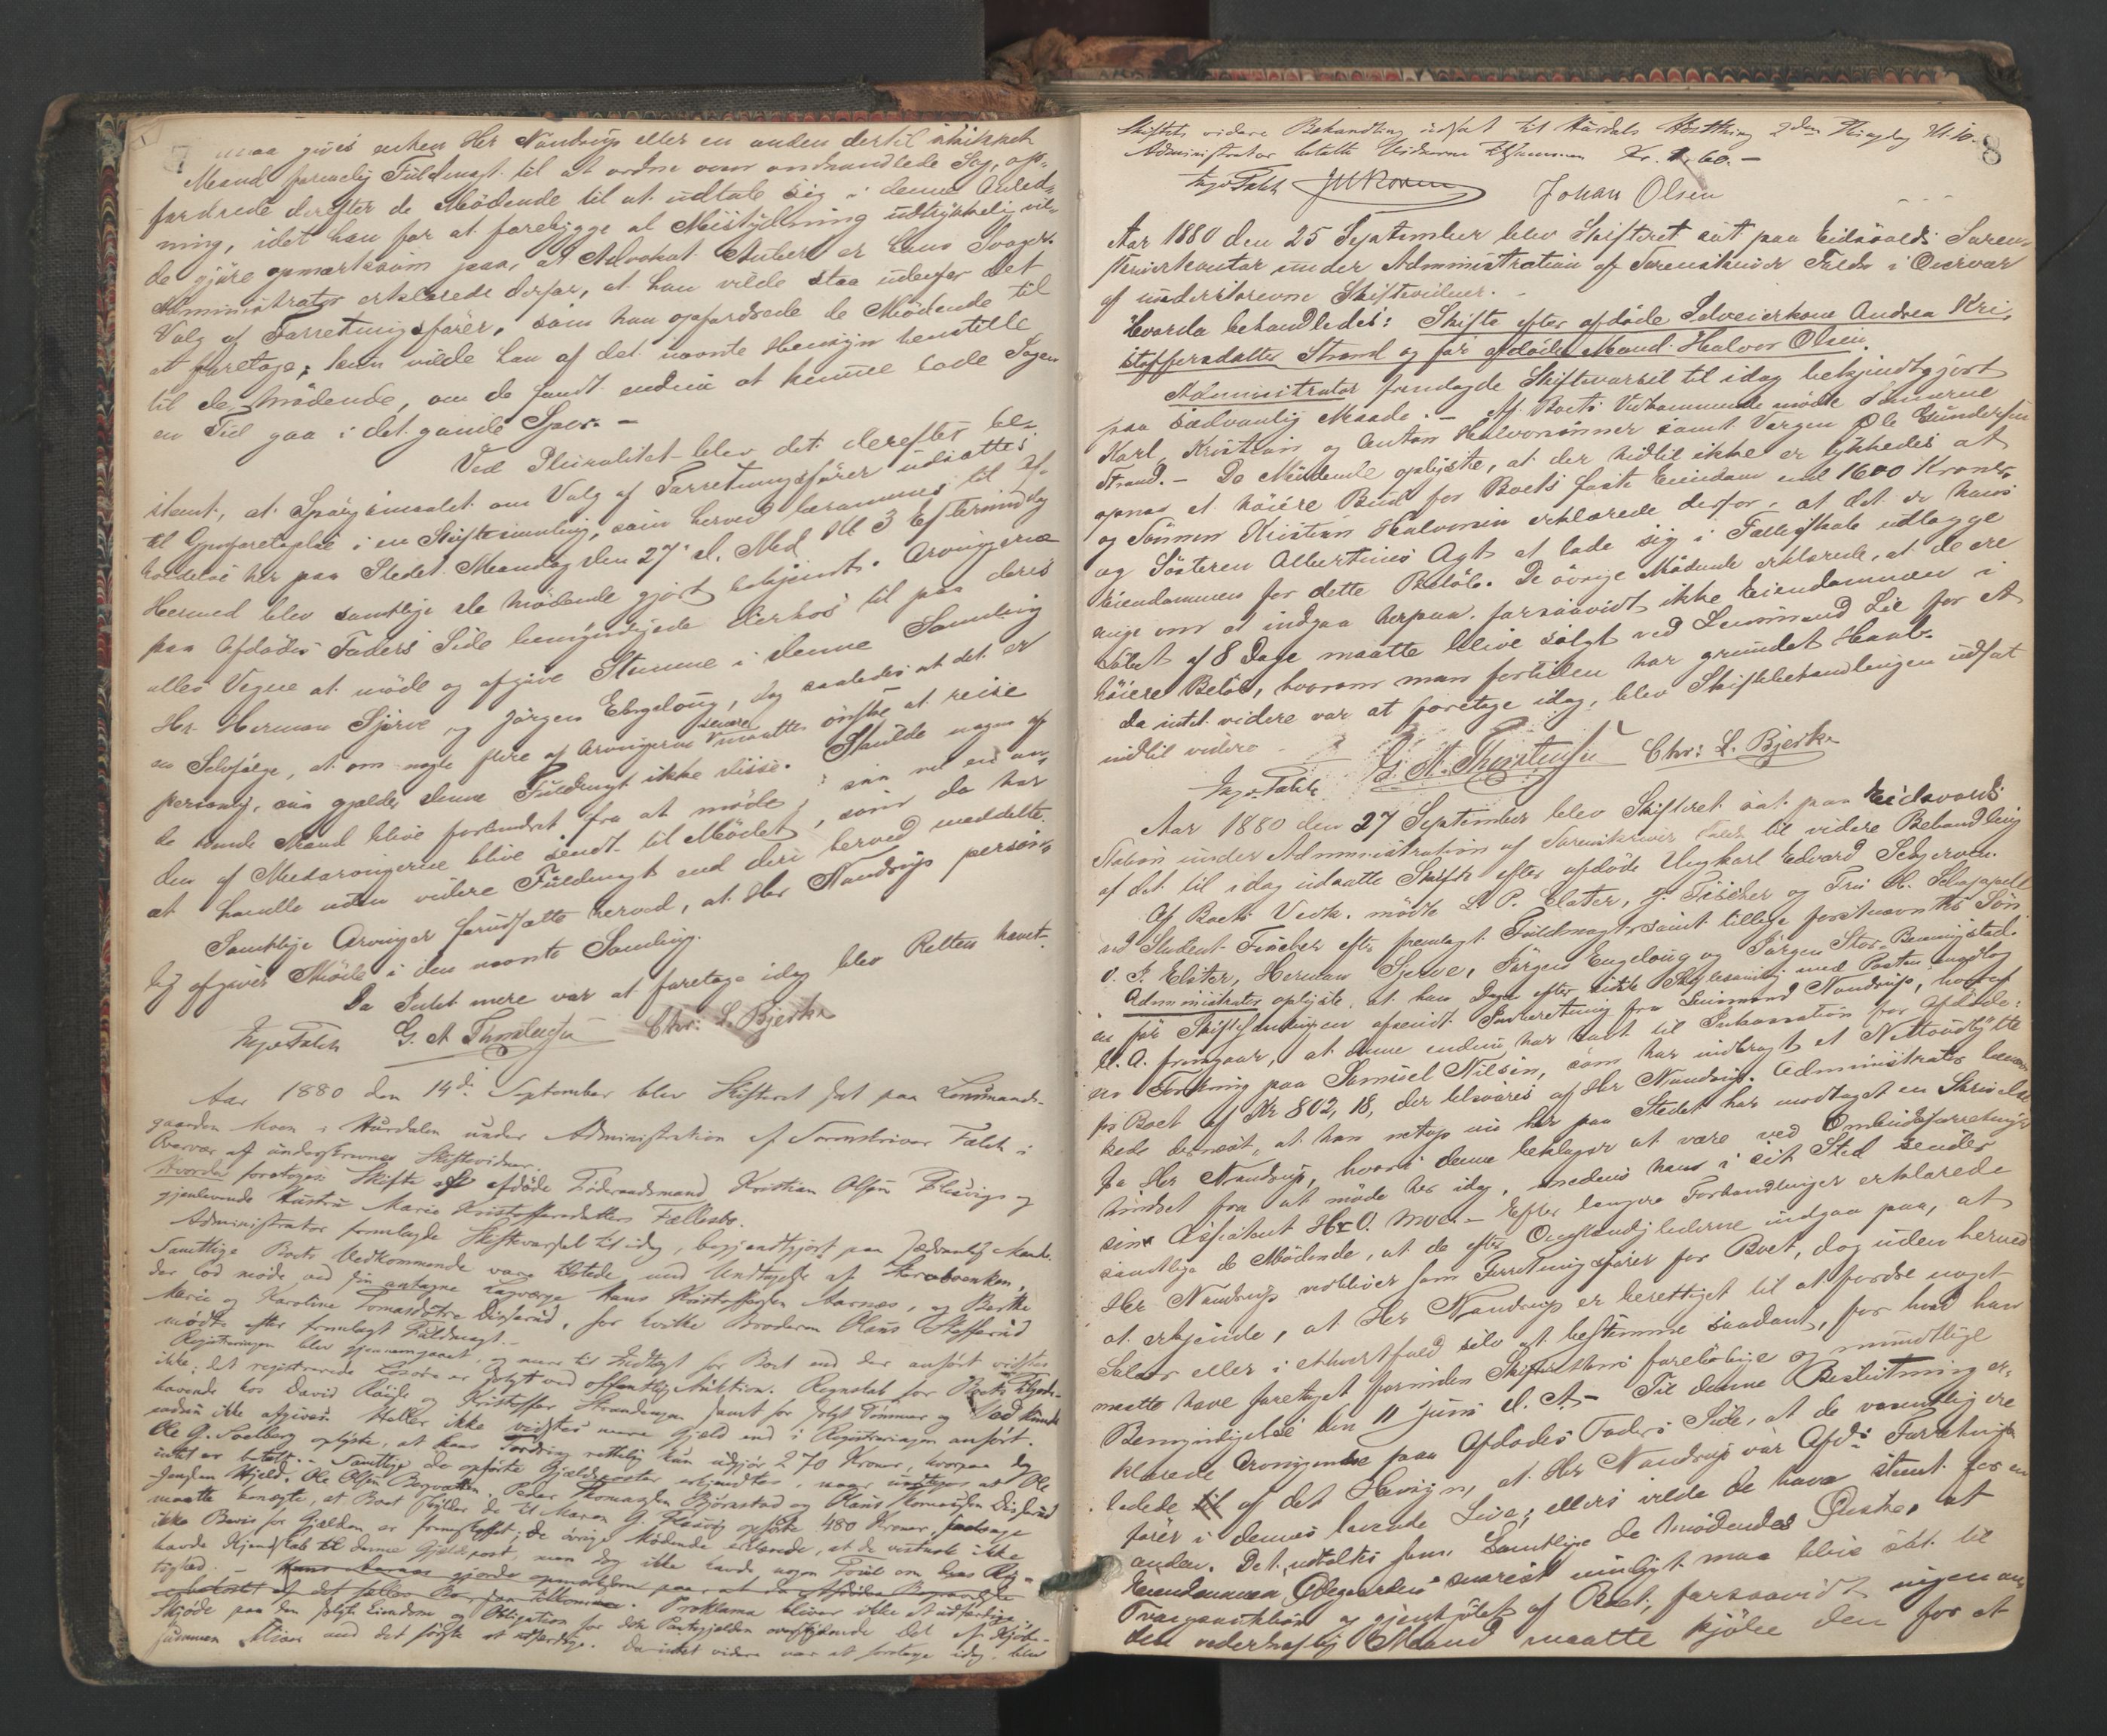 7
maa gives enten Hr Nandrup eller en anden dertil skikket
Mand formelig Fuldmagt til at ordne ovenomhandlede Sag, op-
fordrede derefter de Mödende til at udtale sig i denne Anled-
ning, idet han for at forebygge al Mistydning udtrykkelig vil-
de gjöre opmærksom paa, at Advokat Aubert er hans Svoger.
Administrator erklærede derfor, at han vilde staa udenfor det
Valg af Forretningsförer, som han opfordrede de Mödende til
at foretage; kun vilde han af det nævnte Hensyn henstille
til de Mödende, om de fandt endnu at kunne lade Sagen
en Tid gaa i det gamle Spor. -
Ved Pluralitet blev det derefter be-
stemt, at Spörgsmaalet om Valg af Forretningsförer udsattes
til Gjenforetagelse i en Skiftesamling, som herved berammes til Af-
holdelse her paa Stedet Mandag den 27 d. Med Kl 3 Eftermiddag
Hermed blev samtlige de Mödende gjort bekjendt. Arvingerne
paa Afdödes Faders Side bemyndigede derhos til paa deres
alles Vegne at möde og afgive Stemme i denne Samling
Hr Herman Sjerve og Jörgen Engeloug, dog saaledes at det er
en Selvfölge, at om nogle flere af Arvingerne senere maatte önske at reise
personlig, saa gjælder denne Fuldmagt ikke disse. Skulde nogen af
de tvende Mænd blive forhindret fra at möde, saa vil en an-
den af Medarvingerne blive sendt til Mödet, som da har
at handle uden videre Fuldmagt end den herved meddelte.
Samtlige Arvinger forudsatte herved, at Hr Nandrup person-
lig afgiver Möde i den nævnte Samling.
Da Intet mere var at foretage idag blev Retten hævet.
G. A. Thorstensen Chr: L. Bjerke
Aar 1880 den 14de September blev Skifteret sat paa Lensmands-
gaarden Moen i Hurdalen under Administration af Sorenskriver Falch i
Overvær af underskrevne Skiftevidner.
Hvorda foretoges: Skifte efter afdöde Föderaadsmand Kristian Olsen Flesvig og
gjenlevende Hustru Marie Kristoffersdatters Fællesbo.
Administrator fremlagde Skiftevarsel til idag, bekjendtgjort paa sædvanlig Maade.
Samtlige Boets Vedkommende vare tilstede med Undtagelse af Storebrenken,
der lod möde ved sin antagne Lagværge Hans Kristoffersen Aarnæs, og Berthe
Marie og Karoline Tomasdötre Disserud, for hvilke Broderen Olaus
mödte efter fremlagt Fuldmagt. -
Registreringen blev gjennemgaaet, og mere til Indtægt for Boet end der anfört vidstes
ikke. Det registrerede Lösöre er solgt ved offentlig Auktion. Regnskab for Boets
havende hos David Röise og Kristoffer Strandengen samt for solgt Tömmer og Ved kunde
endnu ikke afgives. Heller ikke vidstes mere Gjæld end i Registreringen anfört.
Ole G. Soelberg oplyste, at hans Fordring rettelig kun udgjör 270 Kroner, hvorpaa dog
intet er betalt. - Samtlige de opförte Gjældsposter erkjendtes, naar undtages at Ole
Ole Olsen Bergvatten, Peder Thomassen Björnstad og Olaus Thomassen Disserud
maatte benegte, at Boet skylder de til Maren G. Flesvig opförte 480 Kroner, saalænge
ikke Bevis for Gjælden er fremskaffet; de övrige Mödende erklærede, at de vistnok ikke
havde Kjendskab til denne Gjældspost, men dog ikke havde nogen Tvivl om dens Rig-
tighed. - Hans Aarnæs gjorde opmærksom paa, at
Proklama bliver ikke at udfærdige.
Skjöde paa den solgte Eiendom og Obligation for den Pantegjælden overstigende Del af Kjöbe-
summen bliver med det förste at udfærdige. Da intet videre var at foretage idag, blev
8
Skiftets videre Behandling udsat til Hurdals Höstthing 2den Thingdag Kl. 10.
Administrator betalte Vidnerne Kr. 1,60. -
Johan Olsen
Aar 1880 den 25 September blev Skifteret sat paa Eidsvolds Soren-
skriverkontor under Administration af Sorenskriver Falch i Overvær
af underskrevne Skiftevidner. -
Hvorda behandledes: Skifte efter afdöde Selveierkone Andrea Kri-
stoffersdatter Strand og för afdöde Mand Halvor Olsen.
Administrator fremlagde Skiftevarsel til idag bekjendtgjort
paa sædvanlig Maade. - Af Boets Vedkommende mödte Sönnerne
Karl, Kristian og Anton Halvorsönner samt Vergen Ole Gundersen
Strand. - De Mödende oplyste, at der hidtil ikke er lykkedes at
opnaa et höiere Bud for Boets faste Eiendom end 1600 Kroner,
og Sönnen Kristian Halvorsen erklærede derfor, at det er hans
og Sösteren Albertines Agt at lade sig i Fællesskab udlægge
Eiendommen for dette Belöb. De övrige Mödende erklærede, at de ere
enige om at indgaa herpaa, forsaavidt ikke Eiendommen i
Löbet af 8 Dage maatte blive solgt ved Lensmand Lie for et
höiere Belöb, hvorom man fortiden har grundet Haab.
Da intet videre var at foretage idag, blev Skiftebehandlingen udsat
indtil videre.
G. A. Thorstensen Chr: L. Bjerke
Aar 1880 den 27 September blev Skifteret sat paa Eidsvolds
Station under Administration af Sorenskriver Falch til videre Behandling
af det til idag udsatte Skifte efter afdöde Ungkarl Edvard Schjerven.
Af Boets Vedk. mödte L. P. Elster, J. Fischer og Fru H. Schappell
ved Student Fischer efter fremlagt Fuldmagt samt tillige förstnævntes Sön
O. J. Elster, Herman Sjerve, Jörgen Engeloug og Jörgen Stor-Benningstad.
Administrator oplyste, at han Dagen efter sidste Skiftesamling med Posten modtog
en för Skiftesamlingen afsendt Indberetning fra Lensmand Nandrup, hvoraf
bl. a. fremgaar, at denne endnu har havt til Inkassation for Afdöde:
en Fordring paa Samuel Nilsen, som har indbragt et Nettoudbytte
for Boet af Kr 802,18, der besvares af Hr Nandrup. Administrator bemær-
kede dernæst, at han netop nu her paa Stedet har modtaget en Skrivelse
fra Hr Nandrup, hvori denne beklager at være ved Embedsforretninger
hindret fra at möde her idag, medens han i sit Sted sender
sin Assistent Hr O. Moe. - Efter længere Forhandlinger erklærede
samtlige de Mödende, at de efter Omstændighederne indgaa paa, at
Hr Nandrup vedbliver som Forretningsförer for Boet, dog uden herved
at erkjende, at Hr Nandrup er berettiget til at fordre noget
Salær eller i ethvertfald selv at bestemme saadant, for hvad han
maatte have foretaget forinden Skifterettens forelöbige og mundtlige
Bemyndigelse den 11 Juni d. A. - Til denne Beslutning er-
klærede Arvingerne paa Afdödes Faders Side, at de væsentlig ere
ledede af det Hensyn, at Hr Nandrup var Afd: Forretnings-
förer i dennes levende Live; ellers vilde de have stemt for en
anden. Det udtaltes som Samtlige de Mödendes Önske, at
Eiendommen Ödegaarden snarest muligt maa blive sat til
Tvangsauktion og gjenkjöbt af Boet, forsaavidt ingen an-
den vederheftig Mand maatte kjöbe den for et